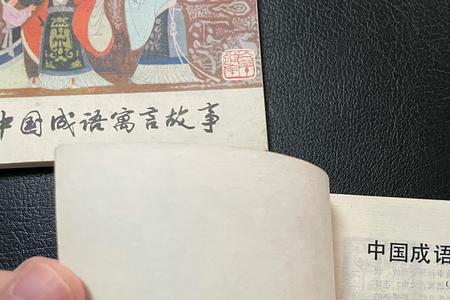 中国成语寓言故事
中国成语